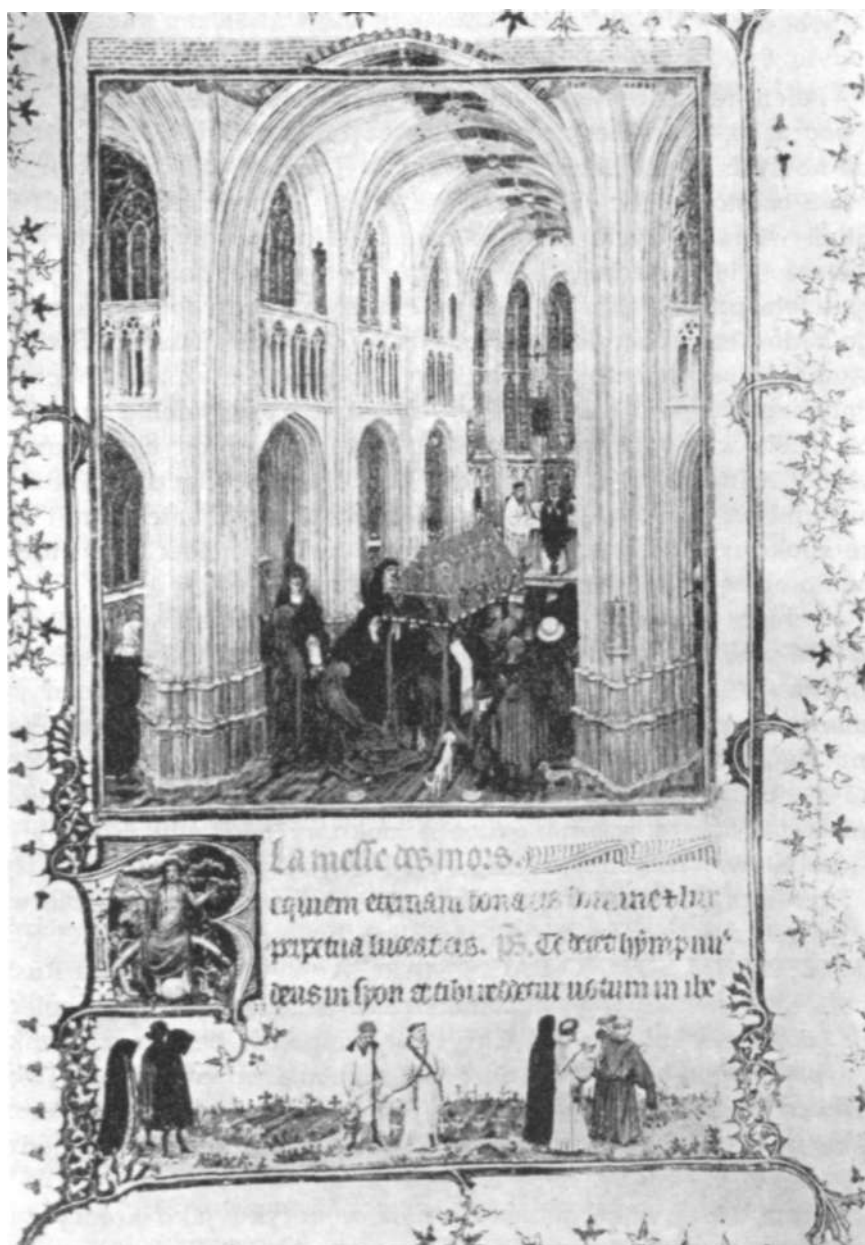 La messe des mors.
equiem eternam dona eis domine & lux
perpetua luceat eis. ps. Te decet hympnus
deus in syon et tibi reddetur uotum in ihe